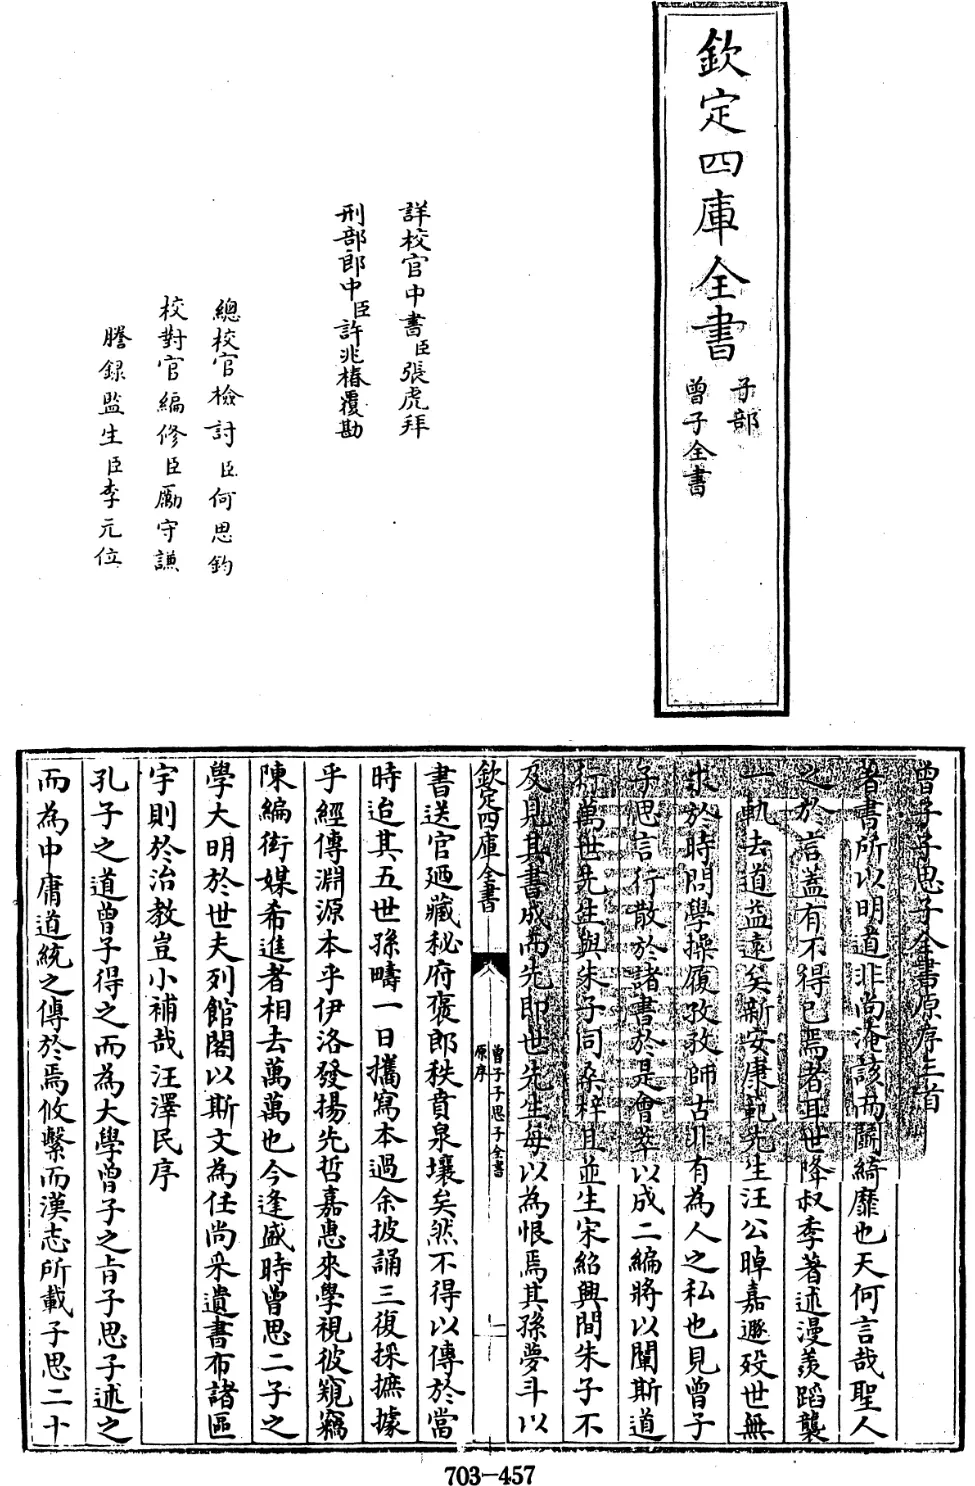 欽定四庫全書
子部
曾子全書
詳校官中書臣張虎拜
刑部郎中臣許兆椿覆勘
總校官檢討臣何思鈞
校對官編修臣勵守謙
謄錄監生臣李元位
曾子子思子全書原序三首
著書所以明道非尚淹該而鬭綺靡也天何言哉聖人
之於言蓋有不得已焉者耳世降叔季著述漫羨蹈襲
一軌去道益遠矣新安康範先生汪公晫嘉遯歿世無
求於時問學操履孜孜師古非有為人之私也見曾子
子思言行散於諸書於是會萃以成二編將以闡斯道
行萬世先生與朱子同桑梓且並生宋紹興間朱子不
及見其書成而先即世先生每以為恨焉其孫夢斗以
欽定四庫全書
曾子子思子全書
原序
一
書送官廼藏秘府褒郎秩賁泉壤矣然不得以傳於當
時迨其五世孫疇一日攜寫本過余披誦三復採摭據
乎經傳淵源本乎伊洛發揚先哲嘉惠來學視彼窺竊
陳編衒媒希進者相去萬萬也今逢盛時曾思二子之
學大明於世夫列館閣以斯文為任尚采遺書布諸區
宇則於治教豈小補哉汪澤民序
孔子之道曾子得之而為大學曾子之旨子思子述之
而為中庸道統之傳於焉攸繫而漢志所載子思二十
703-457